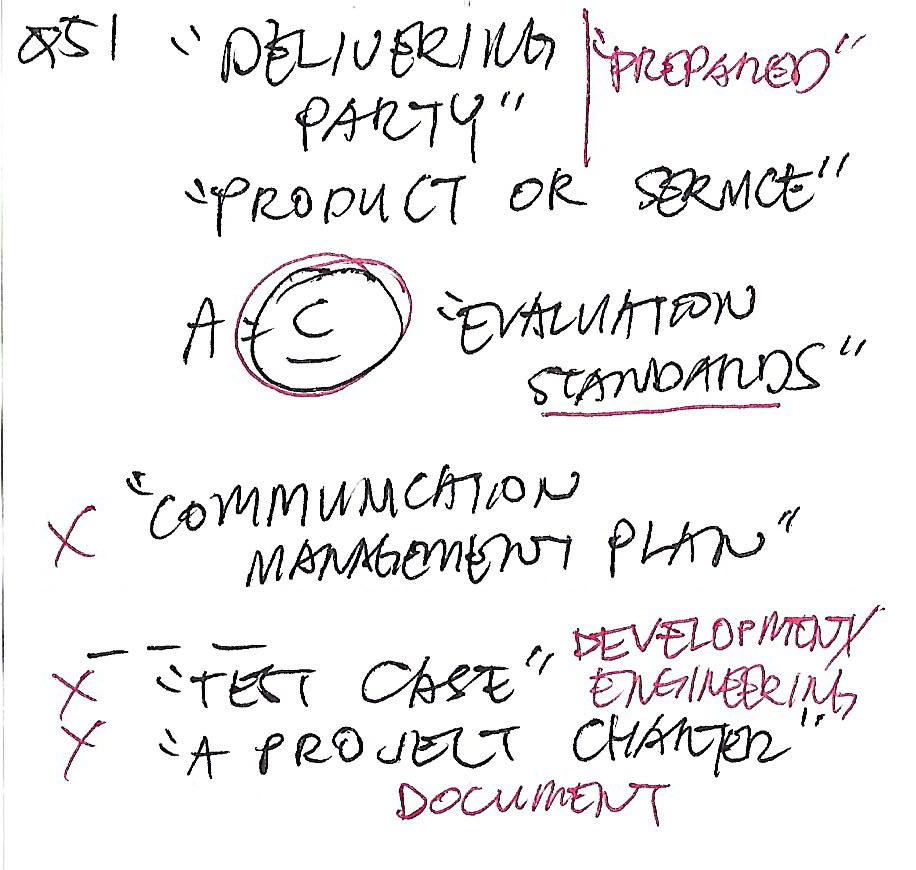 Q51 "DELIVERING "PREPARED"
PARTY"
"PRODUCT OR SERVICE"
A C "EVALUATION
STANDARDS"
X "COMMUNICATION
MANAGEMENT PLAN"
X "TEST CASE" DEVELOPMENT/
ENGINEERING
X "A PROJECT CHARTER"
DOCUMENT